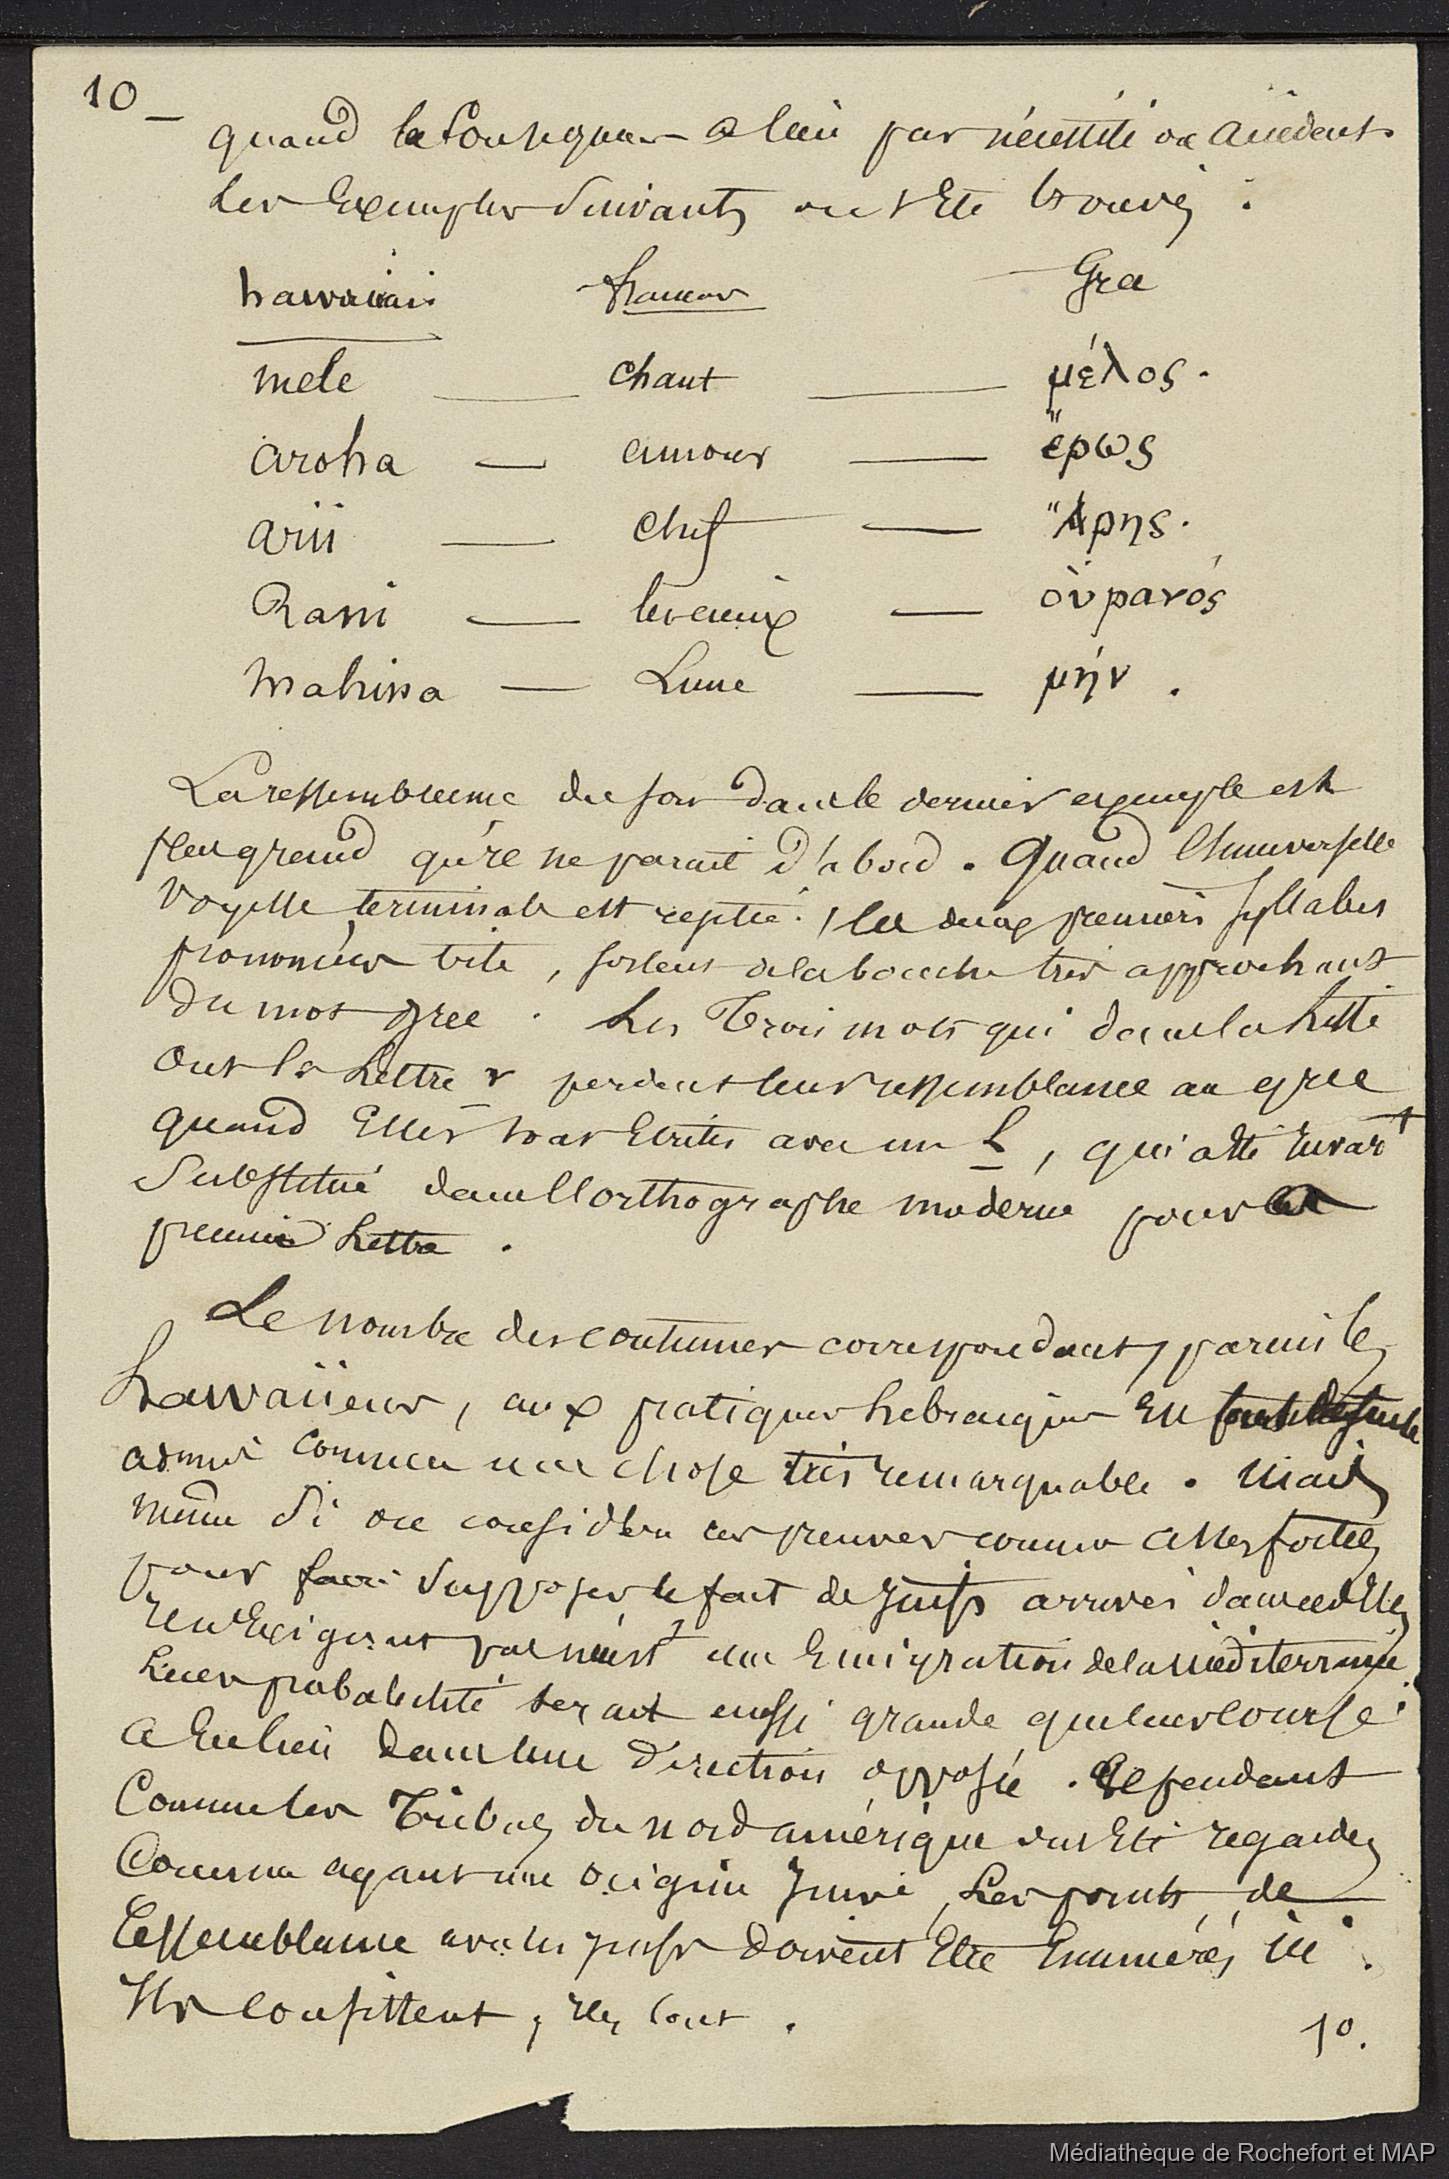 10 _
quand la                a lieu par nécessité ou accident.
Les Exemples suivants ont Eté trouvés :
hawaiiais français Grec
mele — chant — μέλος.
aroha — amour — ἔρως
arii — chef — Ἄρης.
Rani — les cieux — οὐρανός
Mahina — Lune — μήν.
La ressemblance du son dans le dernier exemple est
plus grand qu'il ne parait d'abord. Quand l'universelle
voyelle terminale est             , les deux premières syllabes
prononcées vite, sortent de la bouche très approchant
du mot grec. Les Trois mots qui dans la liste
ont la Lettre r perdent leur ressemblance au grec
quand Elles sont Ecrites avec un L, qui a été
substitué dans l'orthographe moderne pour la
première Lettre.
Le nombre des coutumes correspondant, parmi les
hawaiiens, aux pratiques hebraiques Est
admis comme une chose très remarquable. Mais
même Si on considère ces preuves comme assez fortes
pour faire supposer le fait de Juifs arrivés dans ces Iles
                         une Emigration de la méditerranée.
Leur probabilité serait aussi grande que leur course
a Eu lieu dans une direction opposée. Cependant
Comme les Tribus du nord amérique ont Eté regardés
Comme ayant une origine Juive, Les points de
ressemblance avec les juifs doivent Etre Enumérés ici.
Ils consistent,               .
1º.
Médiathèque de Rochefort et MAP